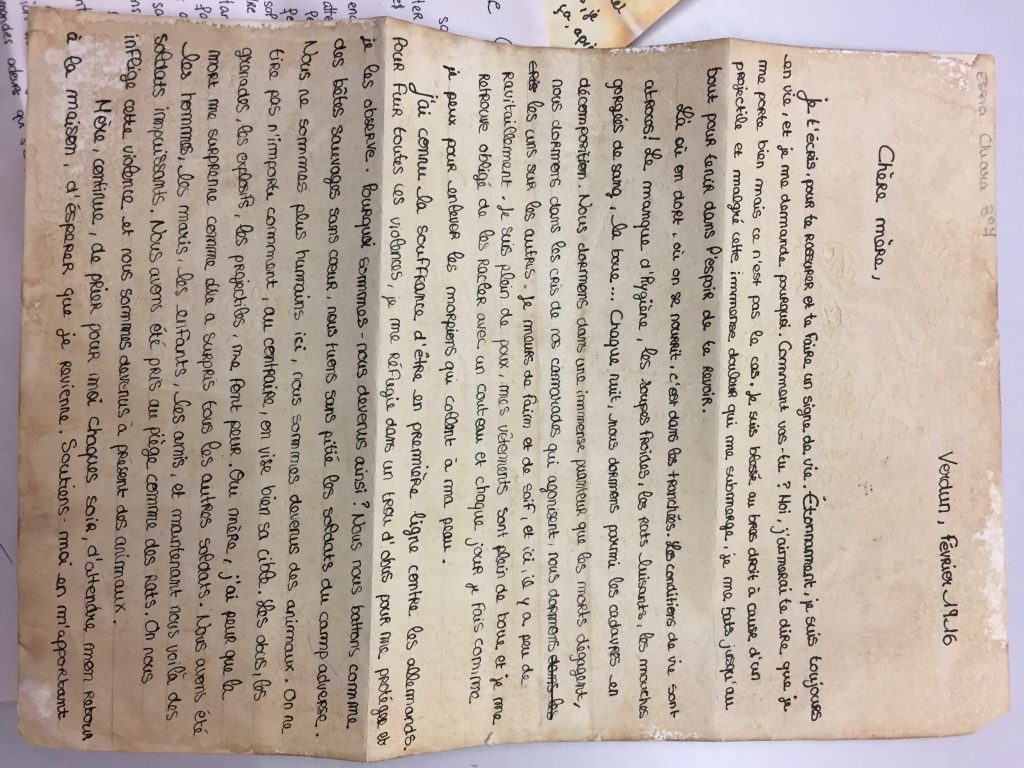 Chiara 3e4
Verdun, Février 1916
Chère mère,
Je t'écris, pour te rassurer et te faire un signe de vie. Étonnamment, je suis toujours
en vie, et je me demande pourquoi. Comment vas-tu ? Moi, j'aimerai te dire que je
me porte bien mais ce n'est pas le cas. Je suis blessé au bras droit à cause d'un
projectile et malgré cette immense douleur qui me submerge, je me bats jusqu'au
bout pour tenir dans l'espoir de te revoir.
Là où on dort, où on se nourrit, c'est dans les tranchés. Les conditions de vie sont
atroces! Le manque d'Hygiène, les soupes froides, les rats luisants, les mouches
gorgées de sang, la boue... Chaque nuit, nous dormons parmi les cadavres en
décomposition. Nous dormons dans une immense puanteur que les morts dégagent,
nous dormons dans les cris de nos camarades qui agonisent, nous dormons dans les
les uns sur les autres. Je meurs de faim et de soif, et ici, il y a peu de
ravitaillement. Je suis plein de poux, mes vêtements sont plein de boue et je me
retrouve obligé de les racler avec un couteau et chaque jour je fais comme
je peux pour enlever les morpions qui collent à ma peau.
J'ai connu la souffrance d'être en première ligne contre les allemands.
Pour fuir toutes ces violences, je me réfugie dans un trou d'obus pour me protéger et
je les observe. Pourquoi sommes-nous devenus ainsi ? Nous nous battons comme
des bêtes sauvages sans cœur, nous tuons sans pitié les soldats du camp adverse.
Nous ne sommes plus humains ici, nous sommes devenus des animaux. On ne
tire pas n'importe comment, au contraire, on vise bien sa cible. Les obus, les
grenades, les explosifs, les projectiles, me font peur. Oui mère, j'ai peur que la
mort me surprenne comme elle a surpris tous les autres soldats. Nous avons été
les hommes, les maris, les enfants, les amis, et maintenant nous voilà des
soldats impuissants. Nous avons été pris au piège comme des rats. On nous
inflige cette violence et nous sommes devenus à présent des animaux.
Mère, continue, de prier pour moi chaques soir, d'attendre mon retour
à la maison, d'espérer que je revienne. Soutiens-moi en m'apportant